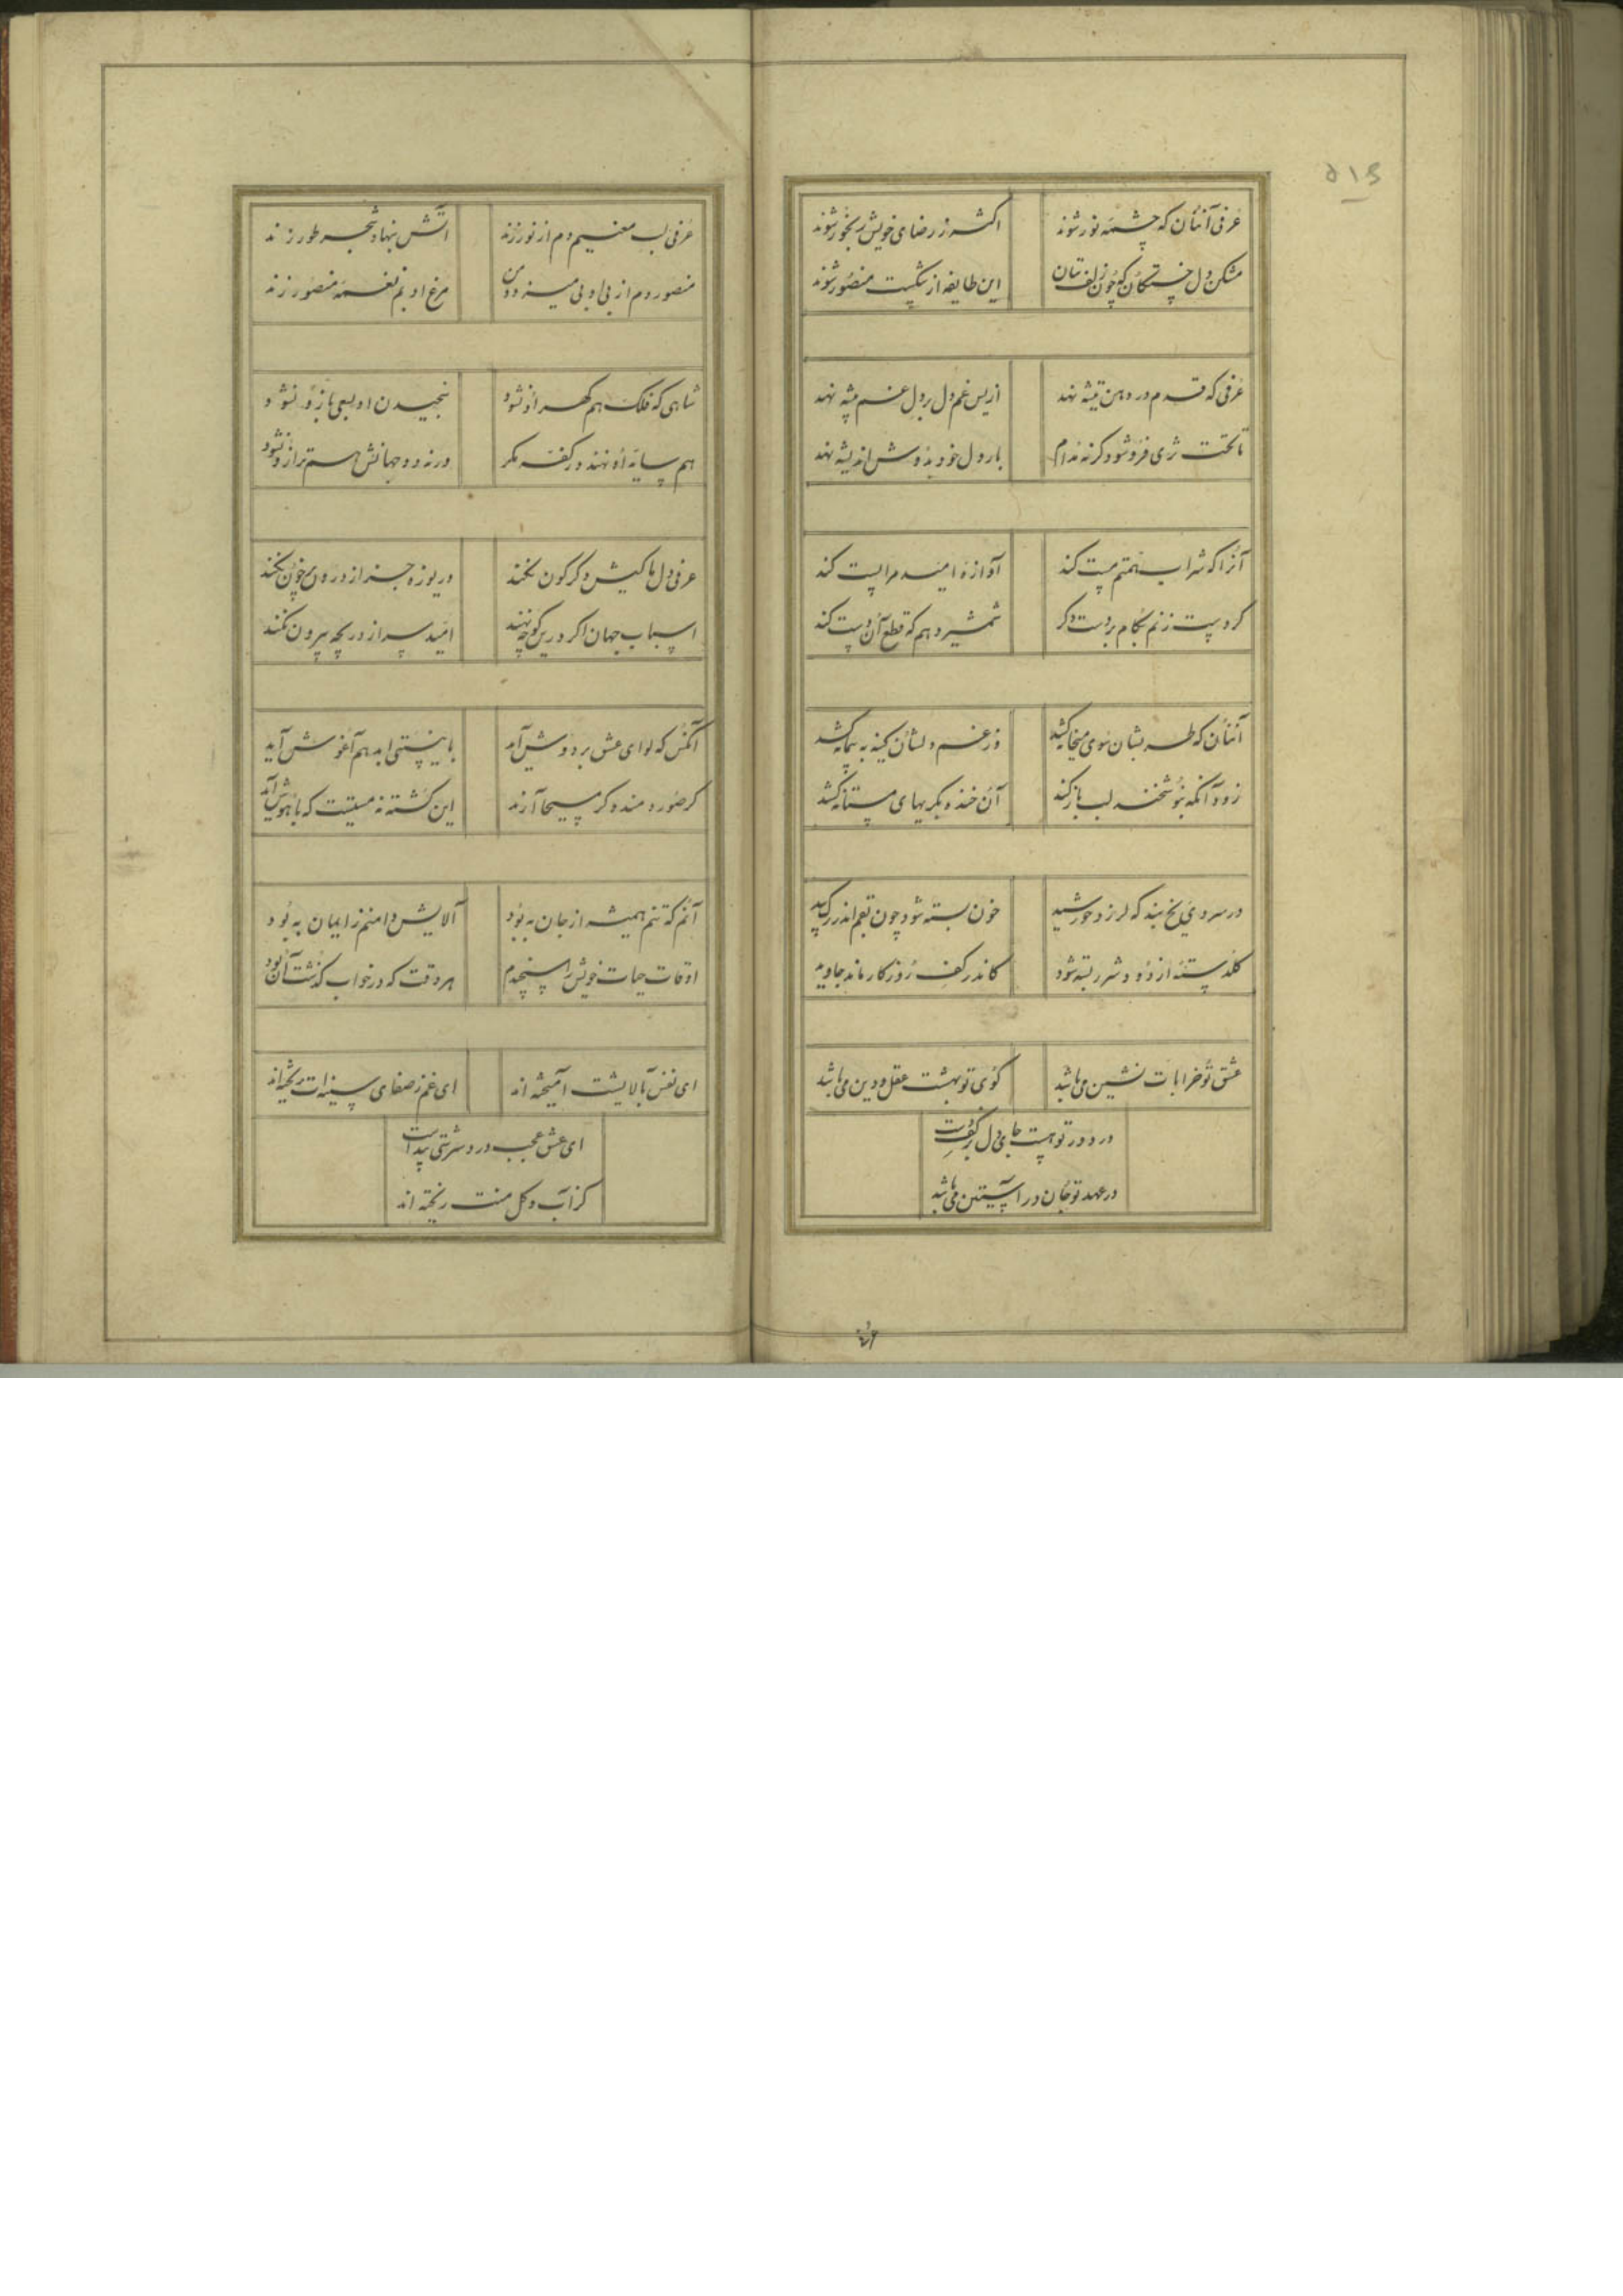 ۵۱۵
عرفی آنان که چشمهٔ نور شوند اکثر ز رضای خویش رنجور شوند
مشکن دل خستگان که چون زلف بتان این طایفه از شکست منصور شوند
عرفی که قدم در دهن تیشه نهد از بس غم دل بر دل غم پیشه نهد
تا تحت ثری فرو شود گر نه مدام بار دل خود بدوش اندیشه نهد
آنرا که شراب همتم مست کند آوازهٔ امید مرا پست کند
گر دست زنم بکام بر دست دگر شمشیر دهم که قطع آن دست کند
آنان که طربشان سوی میخانه کشد وز غم دلشان کینه به پیمانه کشد
زود آنکه بنوشخند لب باز کند آن خنده بگریهای مستانه کشد
در سردی یخ بند که لرزد خورشید خون بسته شود چون بقم اندر رگ بید
گلدسته از دود و شرر بسته شود کاندر کف روزگار ماند جاوید
عشق تو خرابات نشین می باشد کوی تو بهشت عقل و دین می باشد
در دور تو هست جای دل بر کف دست
در عهد تو جان در آستین می باشد
عرفی لب معنیم دم از نور زند آتش بنهاد شجر طور زند
منصور دم از بی ادبی میزد و من مرغ ادبم نغمهٔ منصور زند
شاهی که فلک هم گهر او نشود سنجیدن او بسعی بازو نشود
هم سایهٔ او نهند در کفه مگر ورنه دو جهانش هم ترازو نشود
عرفی دل ما کیش دگرگون نکند دریوزه جز از درون پرخون نکند
اسباب جهان اگر درین کوچه نهند امید سر از دریچه بیرون نکند
آنکس که لوای عشق بر دوش آمد با نیستی ابد هم آغوش آمد
گر صور دمند و گر مسیحا آرند این کشته نه مستیست که با هوش آمد
آنم که تنم همیشه از جان به بود آلایش دامنم ز ایمان به بود
اوقات حیات خویش را سنجیدم هر وقت که در خواب گذشت آن به بود
ای نفس بآلایشت آمیخته اند ای غم ز صفای سینه ات بیخته اند
ای عشق عجب درد سرشتی پیداست
کز آب و گل منت ریخته اند